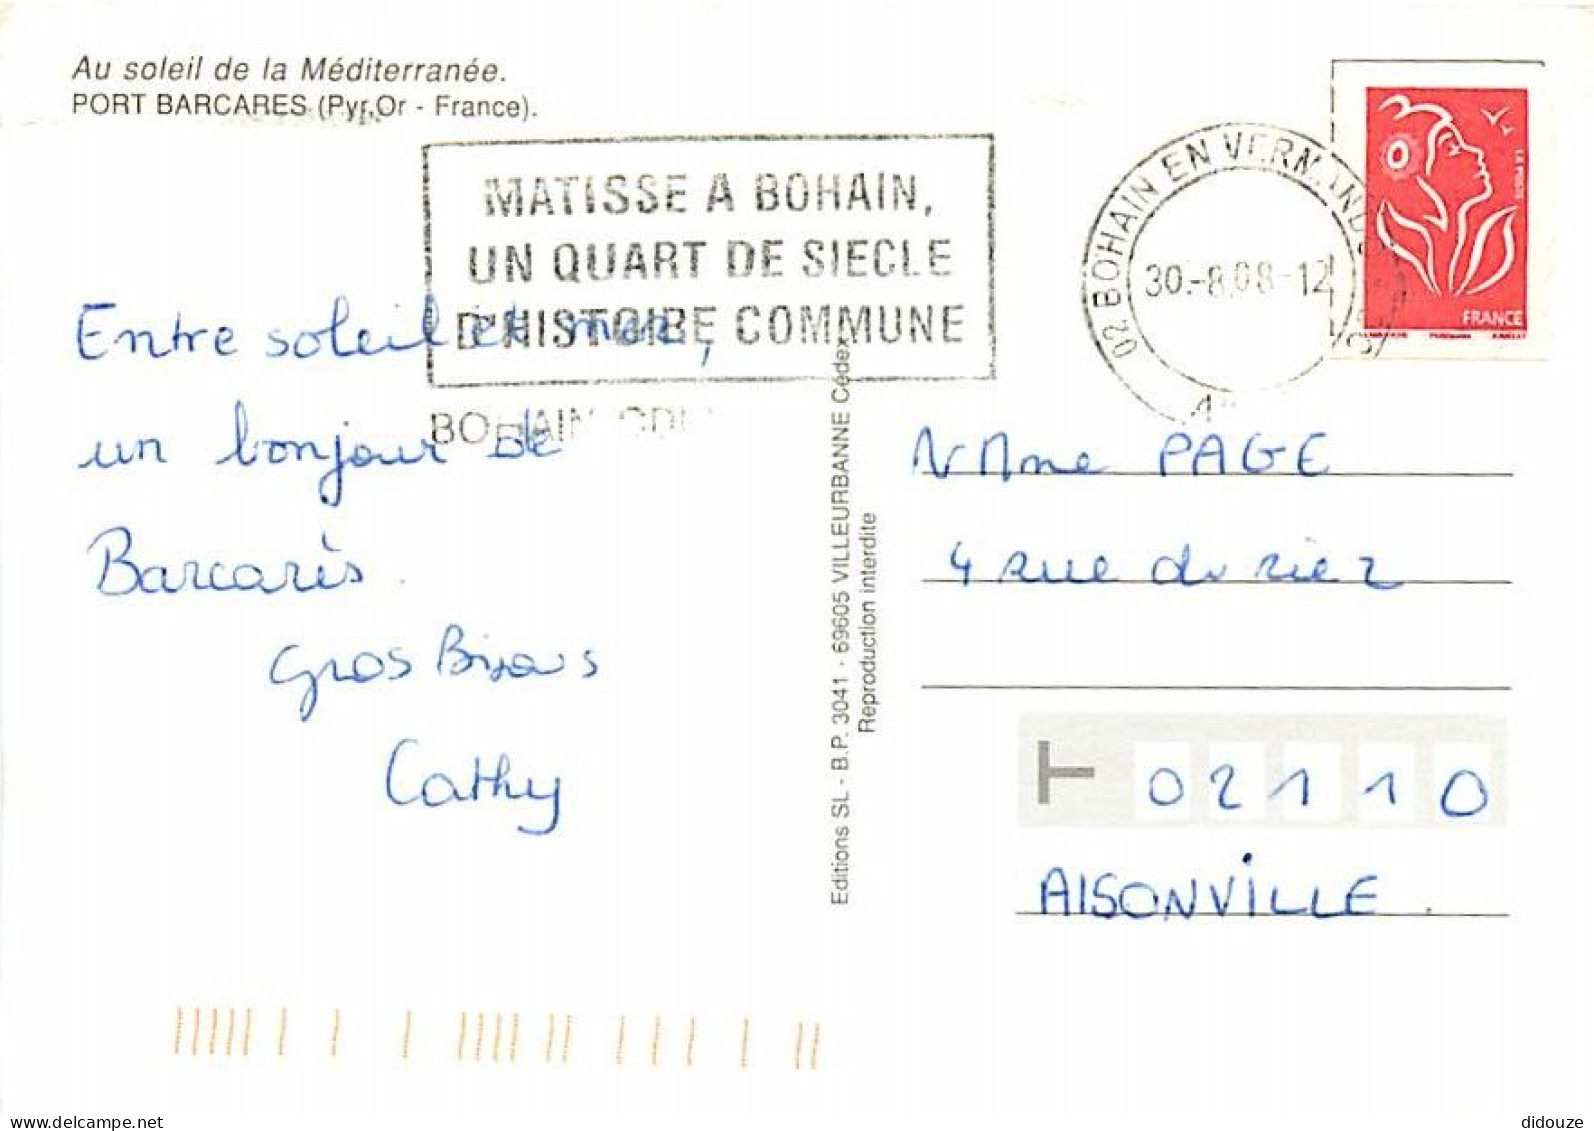 Au soleil de la Méditerranée.
PORT BARCARES (Pyr,Or - France).
MATISSE A BOHAIN,
UN QUART DE SIECLE
D'HISTOIRE COMMUNE
BOHAIN
02 BOHAIN EN VERMAND
30.-8.08-12
LA POSTE
FRANCE
Entre soleil et mer,
un bonjour de
Barcarès.
Gros Bisous
Cathy
Editions SL - B.P. 3041 - 69605 VILLEURBANNE Cedex
Reproduction interdite
Mme PAGE
4 rue du riez
02110
AISONVILLE.
didouze